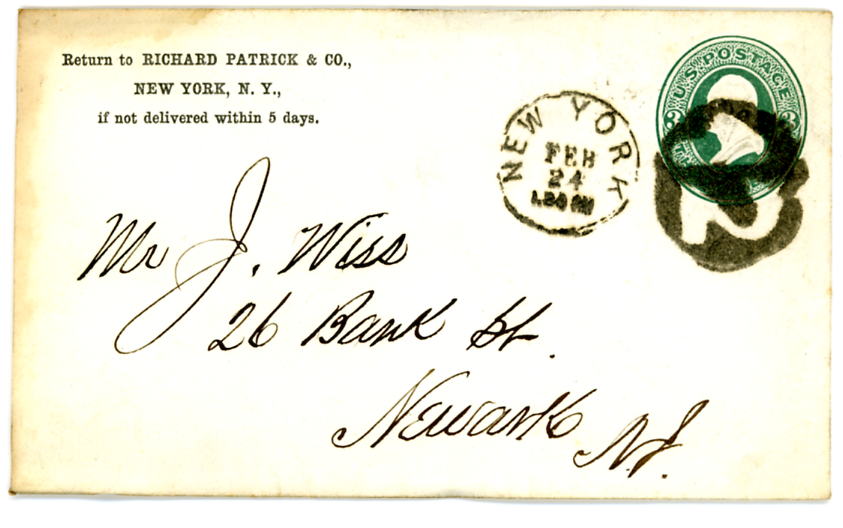 Return to RICHARD PATRICK & CO.,
NEW YORK, N. Y.,
if not delivered within 5 days.
U.S. POSTAGE
NEW YORK
FEB
24
Mr J. Wiss
26 Bank St.
Newark N.J.